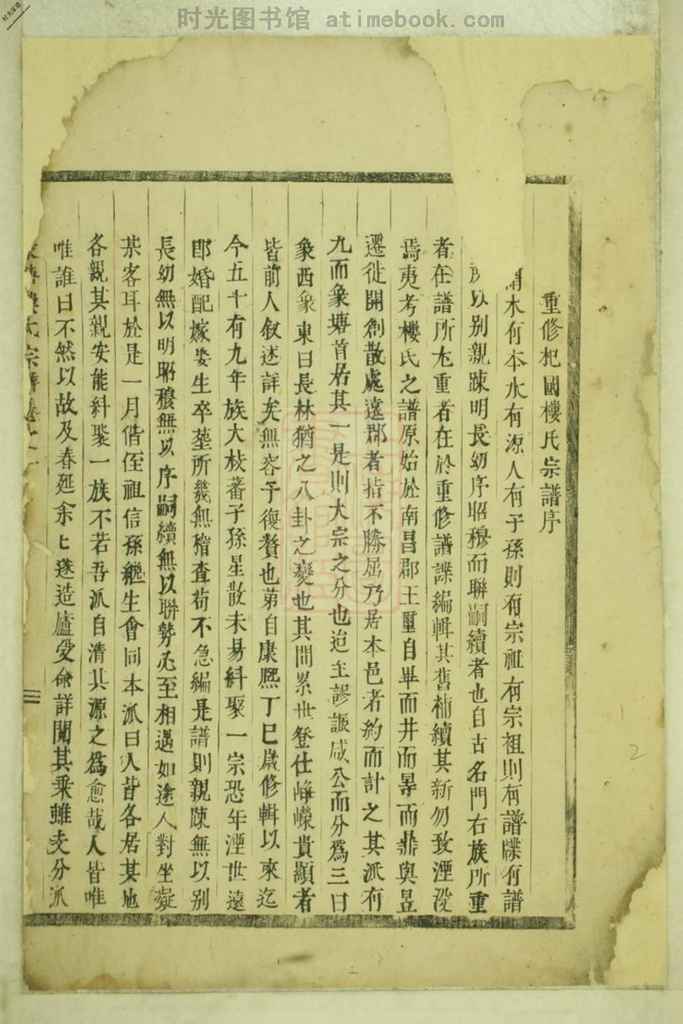 时光图书馆 atimebook.com
重修杞國樓氏宗譜序
水有本水有源人有子孫則有宗祖有宗祖則有譜牒有譜
以别親踈明長幼序昭穆而聯嗣續者也自古名門右族所重
者在譜所尤重者在於重修譜諜編輯其舊補續其新勿致湮沒
焉夷考樓氏之譜原始於南昌郡王璽自畢而井而昴而鼎與昱
遷徙開創散處遠郡者指不勝屈乃居本邑者約而計之其派有
九而象塘首居其一是則大宗之分也迨主諺諏咸公而分爲三曰
象西象東曰長林猶之八卦之變也其間累世登仕崢嶸貴顯者
皆前人叙述詳矣無容予復贅也第自康熙丁巳歲修輯以來迄
今五十有九年族大枝蕃子孫星散未易糾聚一宗恐年湮世遠
即婚配嫁娶生卒塋所幾無稽查苟不急編是譜則親踈無以别
長幼無以明昭穆無以序嗣續無以聯勢必至相遇如途人對坐疑
某客耳於是一月偕侄祖信孫繼生會同本派曰人皆各居其地
各親其親安能糾聚一族不若吾派自清其源之爲愈哉人皆唯
唯誰曰不然以故及春延余匕遂造廬受命詳閱其乘雖支分派
氏宗譜卷
二
2